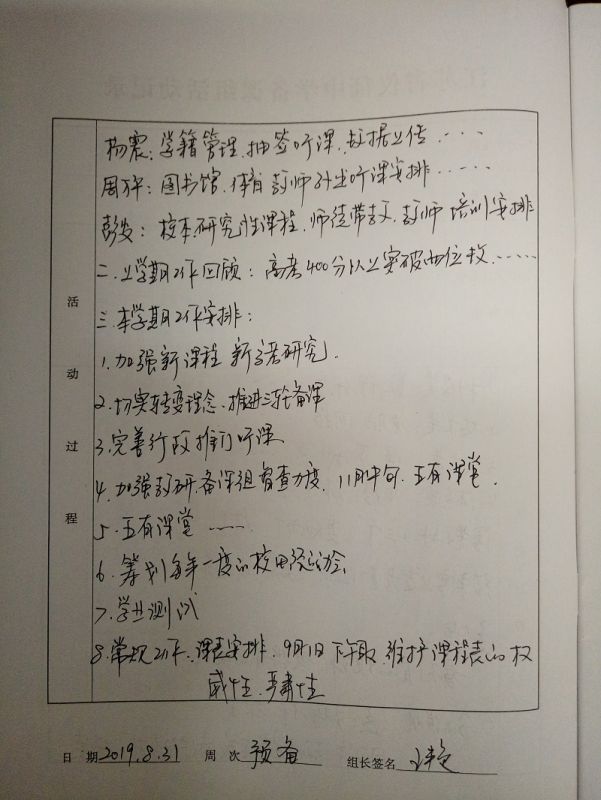 杨震：学籍管理、抽签听课、数据上传……
周祥：图书馆、体育、教师外出听课安排……
彭发：校本研究性课程、师徒带教、教师培训安排
二、上学期工作回顾：高考400分以上突破两位数……
三、本学期工作安排：
1.加强新课程 新高考研究.
2.切实转变理念、推进三轮备课
3.完善行政推门听课
4.加强教研、备课组督查力度、11月中旬、五有课堂.
5.五有课堂……
6.筹划每年一度的校田径运动会
7.学业测试
8.常规工作、课表安排、9月1日下午取 维护课程表的权
威性、严肃性
活动过程
日期2019.8.31 周次 预备 组长签名